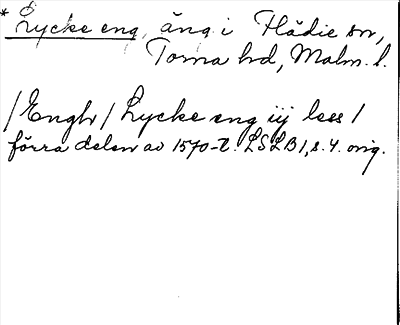 * Lycke eng, äng i Flädie sn,
Torna hd, Malm. l.
/Engh/ Lycke eng iij less/
förra delen av 1570-t. LSLB 1, s. 4. orig.